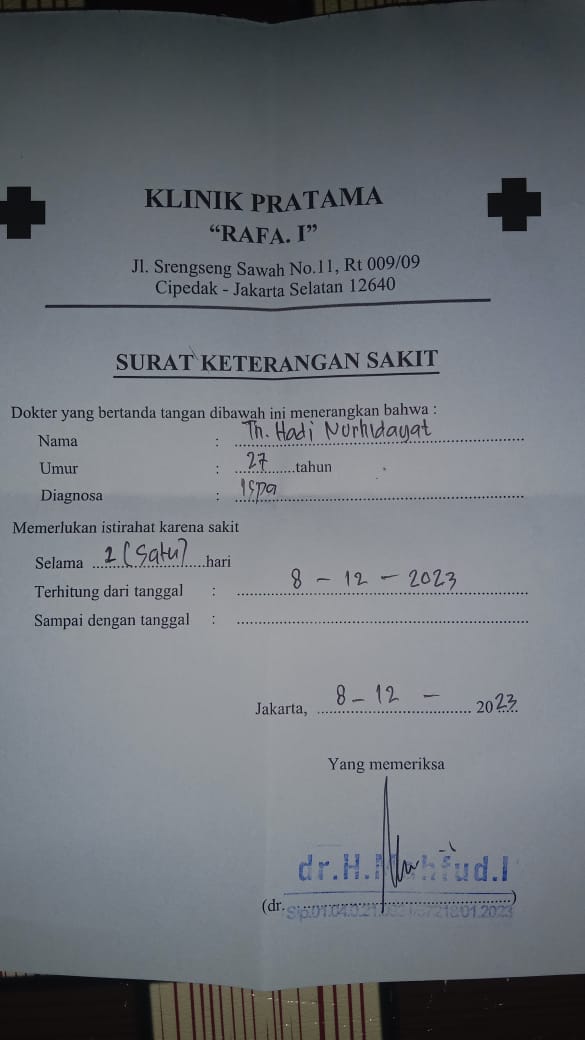 KLINIK PRATAMA
“RAFA. I”
Jl. Srengseng Sawah No.11, Rt 009/09
Cipedak - Jakarta Selatan 12640
SURAT KETERANGAN SAKIT
Dokter yang bertanda tangan dibawah ini menerangkan bahwa :
Nama : Tn. Hadi Nurhidayat
Umur : 27 tahun
Diagnosa : Ispa
Memerlukan istirahat karena sakit
Selama 1 (Satu) hari
Terhitung dari tanggal : 8 - 12 - 2023
Sampai dengan tanggal :
Jakarta, 8 - 12 - 2023
Yang memeriksa
dr.H. Mahfud.I
(dr. )